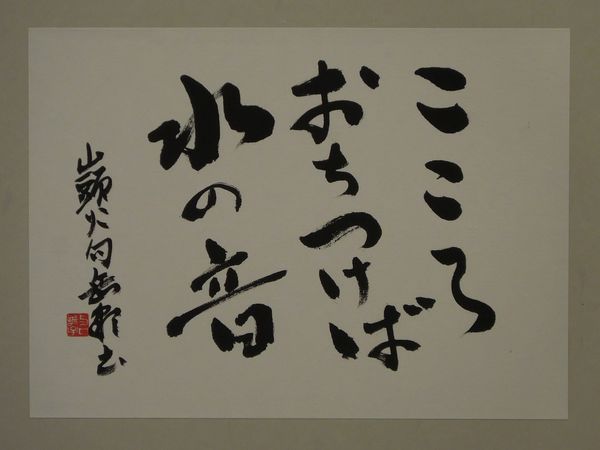 こころ
おちつけば
水の音
山頭火句